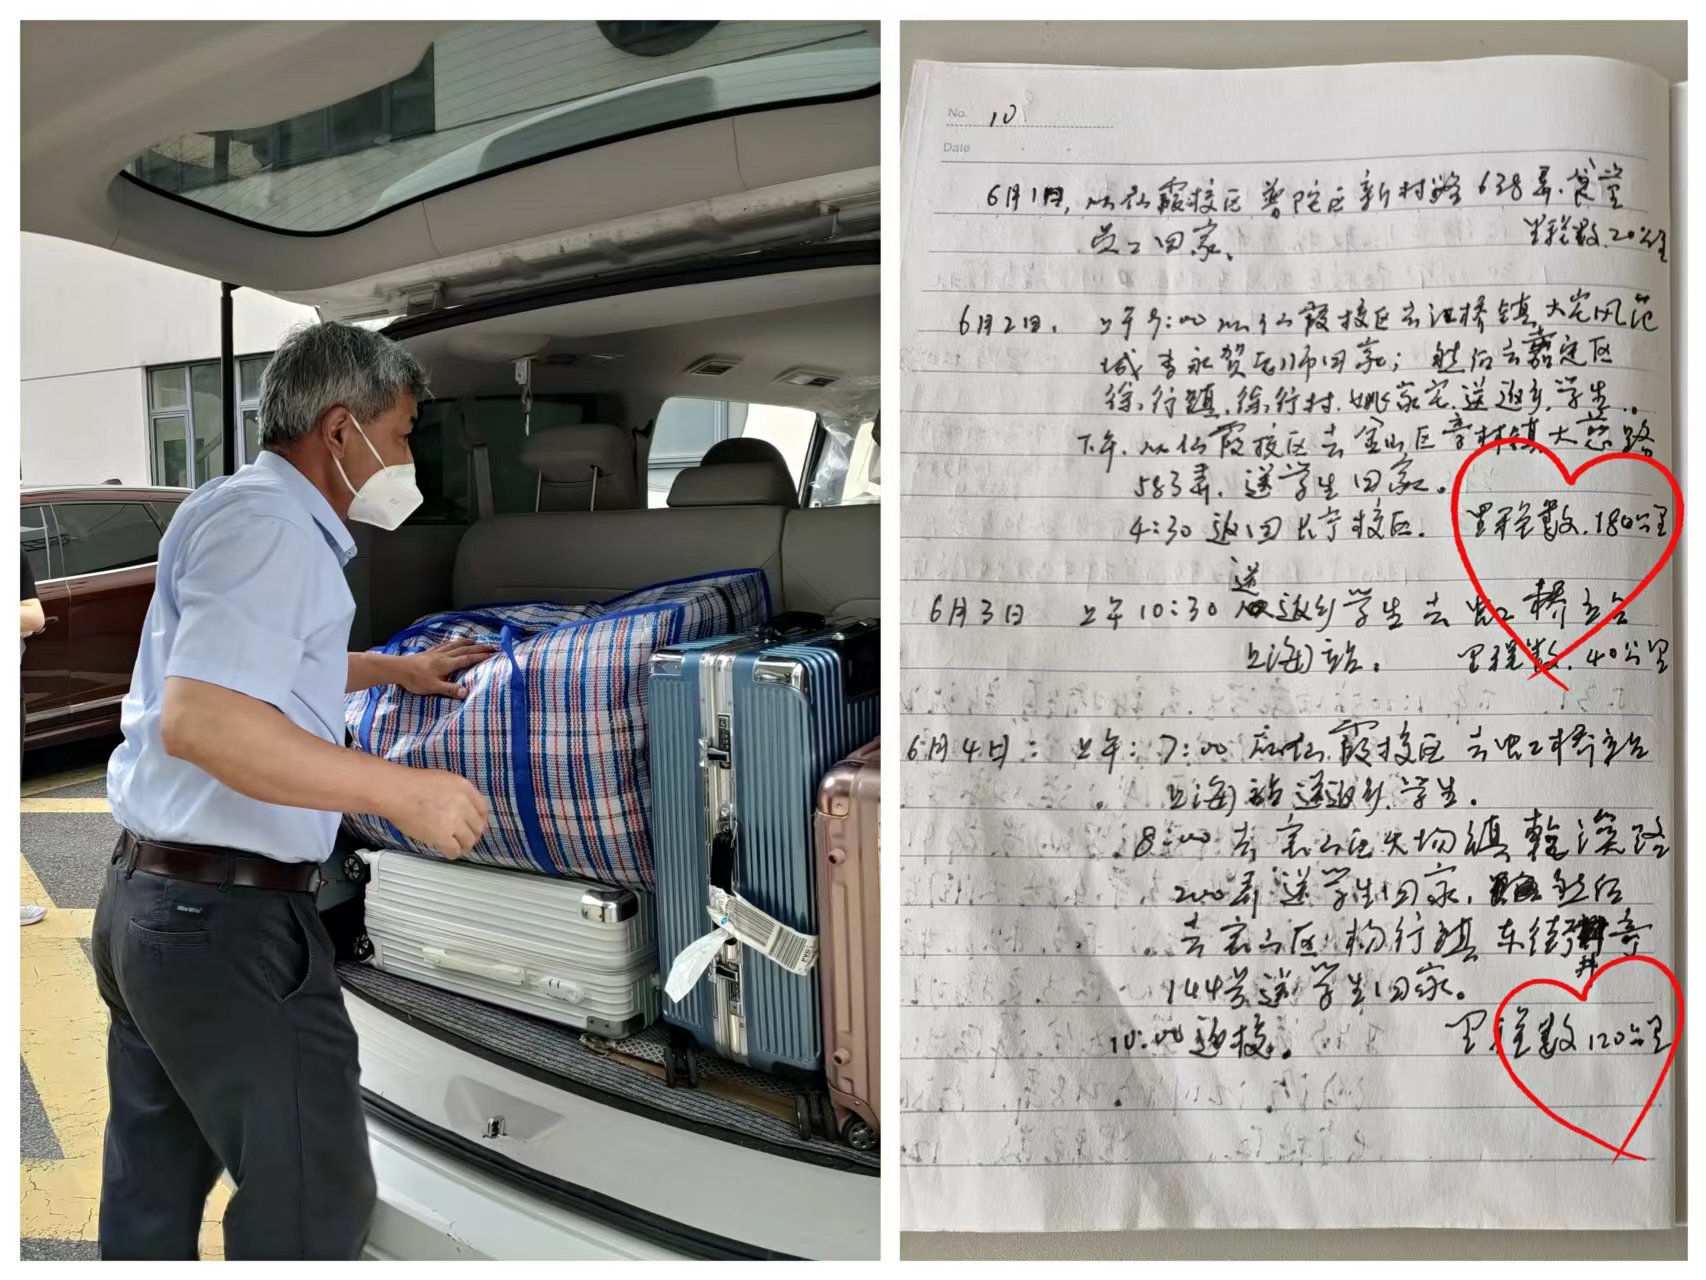 No. 10
Date
6月1日, 从仙霞校区 普陀区新村路638弄.食堂
员工回家. 里程数.20公里
6月2日. 上午9:00从仙霞校区去江桥镇大宅风范
城李永贺老师回家; 然后去嘉定区
徐行镇.徐行村.姚家宅.送返乡.学生..
下午.从仙霞校区去金山区亭林镇大慈路
583弄. 送学生回家.
4:30返回长宁校区. 里程数.180公里
送
6月3日 上午10:30 返乡学生去虹桥站
上海站. 里程数.40公里
6月4日: 上午:7:00 仙霞校区去虹桥站
上海站送返乡.学生.
8:00去宝山区大场镇乾溪路
200弄送学生回家. 然后
去宝山区杨行镇东街
144号送学生回家.
10:00返校. 里程数120公里